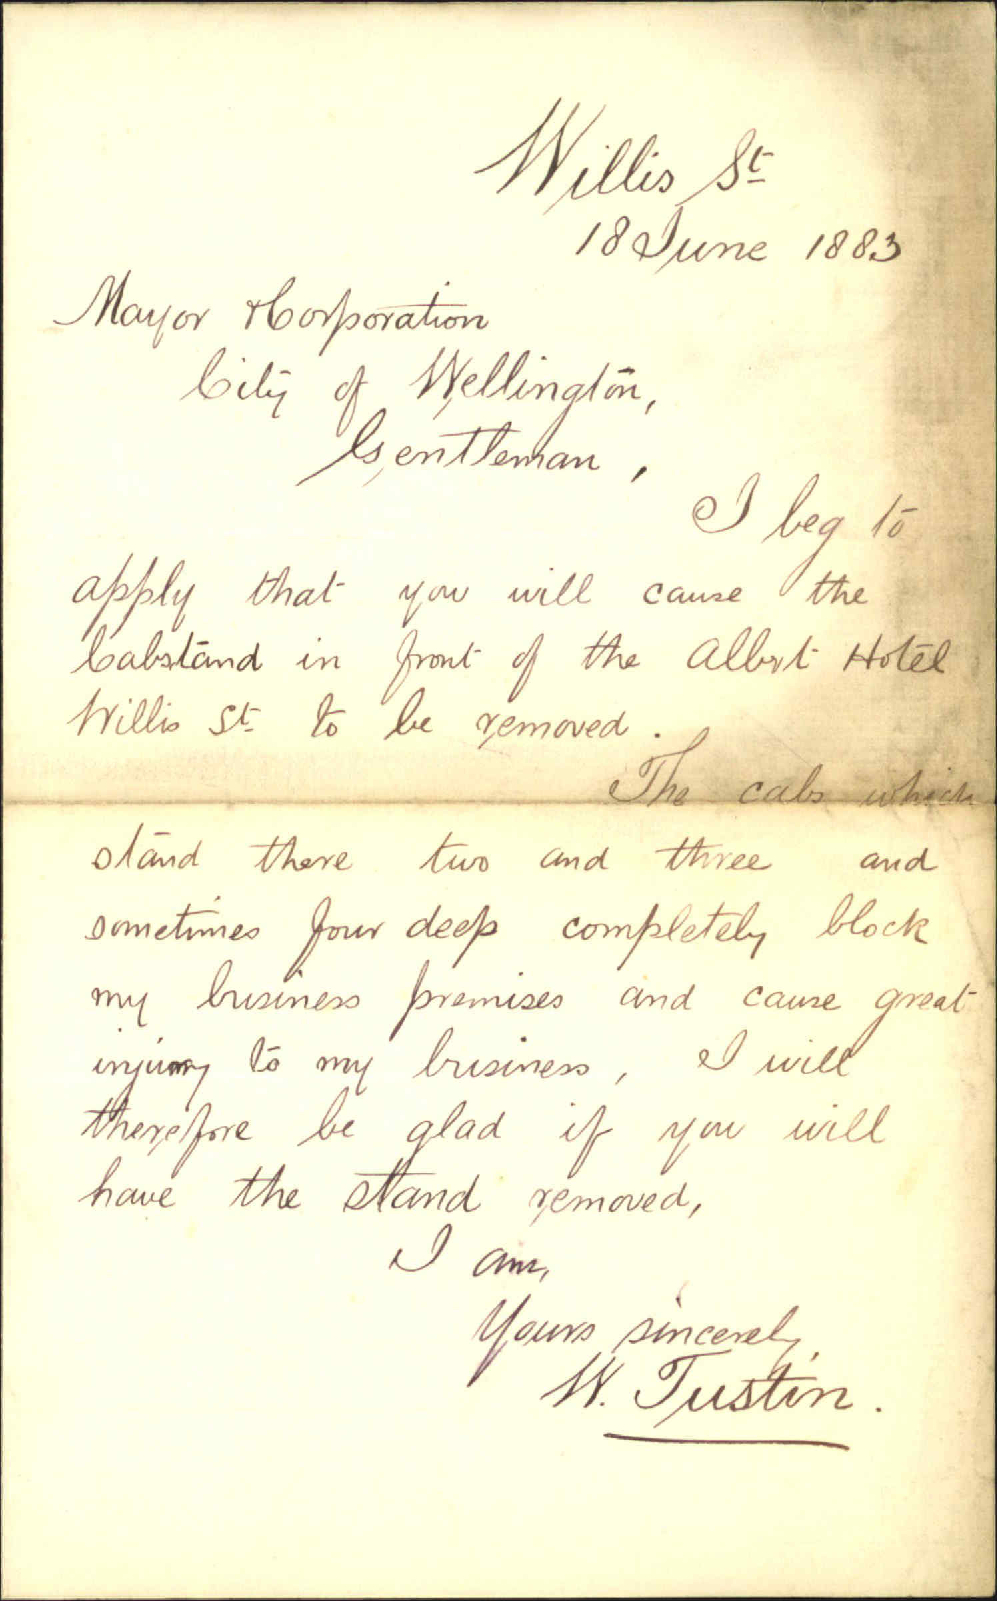 Willis St
18 June 1883
Mayor & Corporation
City of Wellington,
Gentleman,
I beg to
apply that you will cause the
Cabstand in front of the Albert Hotel
Willis St to be removed.
The cabs which
stand there two and three and
sometimes four deep completely block
my business premises and cause great
injury to my business, I will
therefore be glad if you will
have the stand removed,
I am,
Yours sincerely,
W. Tustin.